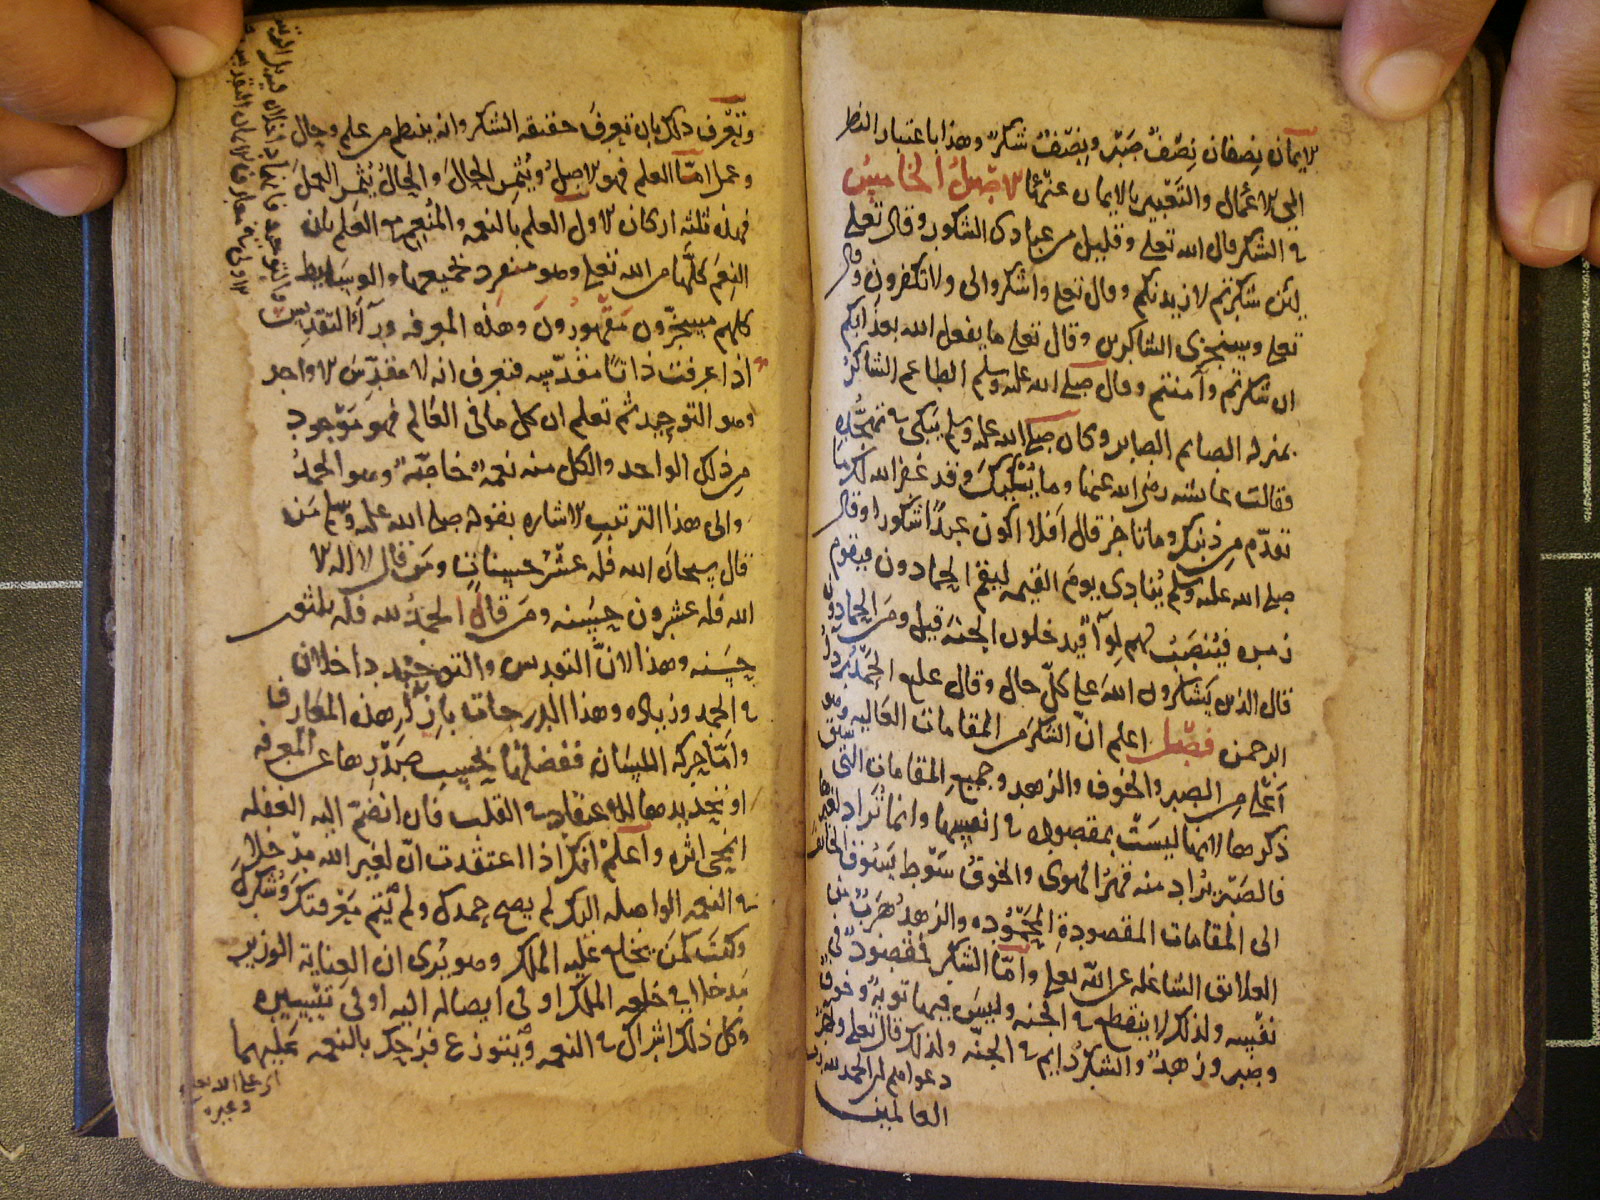 الايمان نصفان نصف صبر ونصف شكر وهذا باعتبار النظر
الى الاعمال والتعبير بالايمان عنها الاصل الخامس
في الشكر قال الله تعلى وقليل من عبادي الشكور وقال تعلى
لئن شكرتم لازيدنكم وقال تعلى واشكروا لي ولا تكفرون وقال
تعلى وسنجزي الشاكرين وقال تعلى ما يفعل الله بعذابكم
ان شكرتم وآمنتم وقال صلى الله عليه وسلم الطاعم الشاكر
بمنزلة الصايم الصابر وكان صلى الله عليه وسلم يبكي في تهجده
فقالت عايشه رضي الله عنها وما يبكيك وقد غفر الله لك ما
تقدم من ذنبك وما تاخر قال افلا اكون عبدًا شكورا وقال
صلى الله عليه وسلم ينادى يوم القيمه ليقم الحمادون فيقوم
زمره فينصب لهم لوآ فيدخلون الجنة قيل ومن الحمادون
قال الذين يشكرون الله على كل حال وقال عليع الحمد ردآ
الرحمن فصل اعلم ان الشكر من المقامات العاليه وهو
اعلى من الصبر والخوف والزهد وجميع المقامات التي سبق
ذكرها لانها ليست بمقصوده في انفسها وانما تراد لغيرها
فالصبر يراد منه قهر الهوى والخوف سوط يسوق الخائف
الى المقامات المقصودة المحموده والزهد هرب من
العلائق الشاغله عن الله تعلى واما الشكر فمقصود في
نفسه ولذلك لا ينقطع في الجنه وليس فيها توبة وخوف
وصبر وزهد والشكر دايم في الجنه ولذلك قال تعلى واخر
دعواهم ان الحمد لله رب
العالمين
وتعرف ذلك بان تعرف حقيقه الشكر وانه ينتظم من علم وحال
وعمل اما العلم فهو الاصل ويثمر الحال والحال يثمر العمل
فهذه ثلثه اركان الاول العلم بالنعمه والمنعم مع العلم بان
النعم كلها من الله تعلى وهو منفرد بجميعها والوسايط
كلهم مسخرون مقهورون وهذه المعرفه ورآء التقديس
اذا عرفت ذاتًا مقدسه فتعرف انه لا مقدس الا واحد
وهو التوحيد ثم تعلم ان كل ما في العالم فهو موجود
من ذلك الواحد والكل منه نعمة خاصة وهو الحمد
والى هذا الترتيب الاشاره بقوله صلى الله عليه وسلم من
قال سبحان الله فله عشر حسنات ومن قال لا اله الا
الله فله عشرون حسنه ومن قال الحمد لله فله ثلثون
حسنه وهذا لان التقديس والتوحيد داخلان
في الحمد وزياده وهذا الدرجات بازآء هذه المعارف
واما حركه اللسان ففضلها بحسب صدرها عن المعرفه
او تجديدها للاعتقاد في القلب فان انضم اليه الغفله
انمحى اثره واعلم انك اذا اعتقدت ان لغير الله مدخلا
في النعمه الواصله اليك لم يصح حمدك ولم يتم معرفتك وشكرك
وكنت كمن يخلع عليه الملك وهو يرى ان العناية الوزير
مدخلا في خلعه الملك او في ايصاله اليه او في تيسيره
وكل ذلك اشراك في النعمه ويتوزع فرحك بالنعمه عليهما